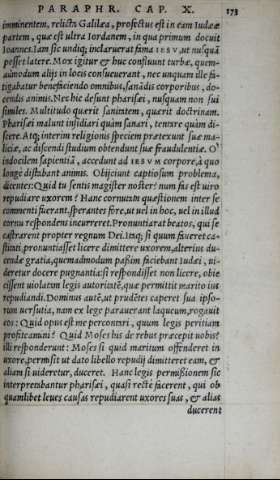 PARAPHR. CAP. X.
173
imminentem, relicta Galilæa, profectus est in eam Iudææ
partem, quæ est ultra Iordanem, in qua primum docuit
Ioannes. Iam sic undiq; inclaruerat fama IESV, ut nusquã
posset latere. Mox igitur & huc confluunt turbæ, quem-
admodum alijs in locis consueuerant, nec unquam ille fa-
tigabatur beneficiendo omnibus, sanãdis corporibus, do-
cendis animis. Nec hic desunt pharisæi, nusquam non sui
similes. Multitudo quærit sanitatem, quærit doctrinam.
Pharisæi malunt insidiari quàm sanari, tentare quàm di-
scere. Atq; interim religionis speciem prætexunt suæ ma-
liciæ, ac discendi studium obtendunt suæ fraudulentiæ. O
indocilem sapientiã, accedunt ad IESVM corpore, à quo
longè distabant animis. Obijciunt captiosum problema,
dicentes: Quid tu sentis magister noster? num fas est uiro
repudiare uxorem? Hanc cornutam quæstionem inter se
commenti fuerant, sperantes fore, ut uel in hoc, uel in illud
cornu respondens incurreret. Pronuntiarat beatos, qui se
castrarent propter regnum Dei. Itaq; si quum faueret ca-
stitati, pronuntiasset licere dimittere uxorem, alterius du-
cendæ gratia, quemadmodum passim faciebant Iudæi, ui-
deretur docere pugnantia: si respondisset non licere, obie
cissent uiolatam legis autoritatẽ, quæ permittit marito ius
repudiandi. Dominus autẽ, ut prudẽtes caperet sua ipso-
rum uersutia, nam ex lege parauerant laqueum, rogauit
eos: Quid opus est me percontari, quum legis peritiam
profiteamini? Quid Moses his de rebus præcepit uobis?
illi responderunt: Moses si quid maritum offenderet in
uxore, permisit ut dato libello repudij dimitteret eam, &
aliam si uideretur, duceret. Hanc legis permissionem sic
interpretabantur pharisæi, quasi recte facerent, qui ob
quamlibet leues causas repudiarent uxores suas, & alias
ducerent